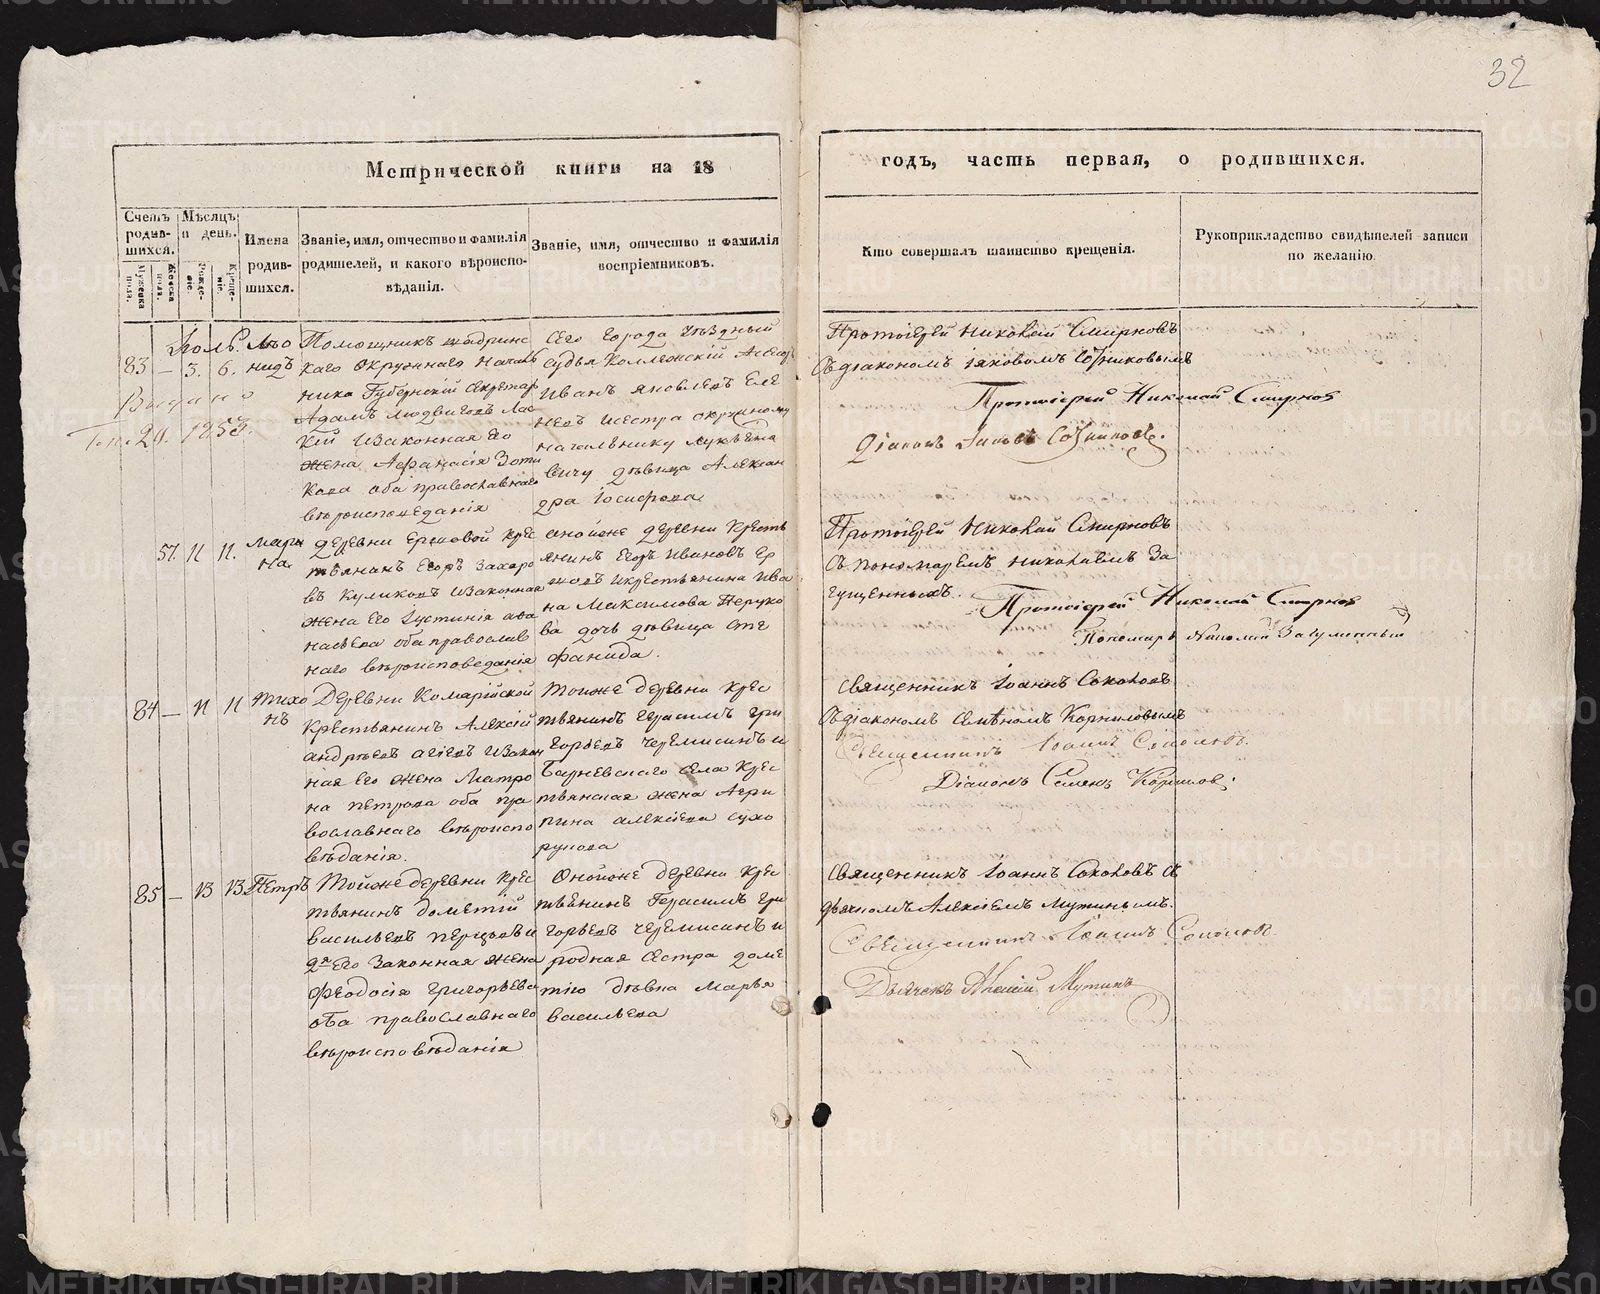 32
Метрической книги на 18
годъ, часть первая, о родившихся.
Счетъ родив-шихся.
Мужеска пола.
Женска пола.
Мѣсяцъ и день.
Рожде-ніе.
Креще-ніе.
Имена родив-шихся.
Званіе, имя, отчество и фамилія
родителей, и какого вѣроиспо-
вѣданія.
Званіе, имя, отчество и фамилія
воспріемниковъ.
Кто совершалъ таинство крещенія.
Рукоприкладство свидѣтелей записи
по желанію.
83 — 3. 6.
Помощникъ шадринс
каго Окружнаго Началь
ника Губернскій Секретарь
Адамъ Людвиговъ
кій и законная его
жена Афанасія Зоти
кова оба православнаго
вѣроисповеданія
Сего города уѣздный
судья Коллежскій Асесоръ
Иванъ Яковлевъ
и сестра окружному
начальнику
вичу дѣвица Алексан
дра Іосифова
Протоіерей Николай Смирновъ
съ діакономъ Іяковомъ
Протоіерей Николай Смирновъ
Діаконъ
57. 11 11. Мари
на
деревни Ершовой крес
тьянинъ Егоръ Захаро
въ Куликовъ и законная
жена его Іустинія
оба православ
наго вѣроисповеданія
оной же деревни кресть
янинъ Егоръ Ивановъ Ер
шовъ и крестьянина Ива
на Максимова
ва дочь дѣвица Сте
фанида.
Протоіерей Николай Смирновъ
съ пономаремъ Николаемъ За
гущеннымъ.
Протоіерей Николай Смирновъ
Пономарь Николай Загущенный
84 — 11 11 Тихо
нъ
Деревни Комарійской
крестьянинъ Алексій
Андрѣевъ и закон
ная его жена Матро
на Петрова оба пра
вославнаго вѣроиспо
вѣданія.
Той же деревни крес
тьянинъ Герасимъ Гри
горьевъ Черемисинъ и
Барневскаго села крес
тьянская жена Агри
пина Алексіева Сухо
рукова
Священникъ Іоаннъ Соколовъ
съ діакономъ Семѣномъ Корниловымъ
Священникъ Іоаннъ Соколовъ.
Діаконъ Семенъ Корниловъ
85 — 13 13 Петръ
Той же деревни крес
тьянинъ Дометій
Васильевъ и
его законная жена
Феодосія Григорьева
оба православнаго
вѣроисповѣданія
Оной же деревни крес
тьянинъ Герасимъ Гри
горьевъ Черемисинъ и
родная сестра Доме
тію дѣвка Марья
Васильева
Священникъ Іоаннъ Соколовъ съ
дьячкомъ Алексіемъ Мутинымъ.
Священникъ Іоаннъ Соколовъ
Дьячекъ Алексій Мутинъ
METRIKI.GASO-URAL.RU